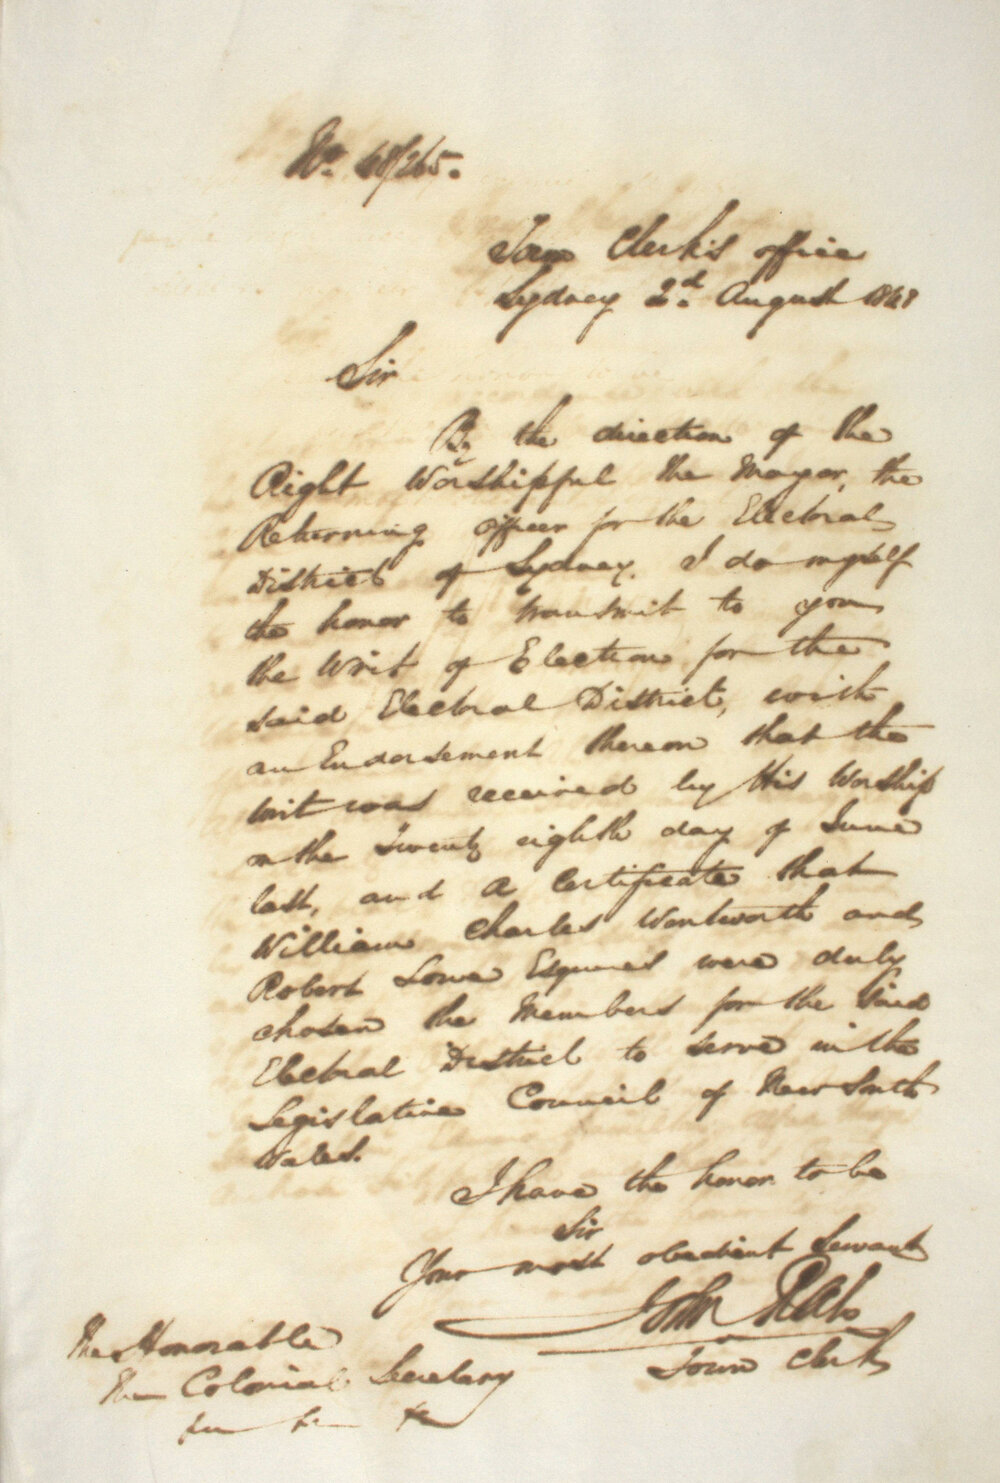 No. 48/265.
Town Clerk's office
Sydney 2d. August 1848
Sir
By the direction of the
Right Worshipful the Mayor, the
Returning officer for the Electoral
District of Sydney, I do myself
the honor to transmit to you
the Writ of Election for the
said Electoral District, with
an Endorsement thereon that the
writ was received by His Worship
on the Twenty eighth day of June
last, and a Certificate that
William Charles Wentworth and
Robert Lowe Esquires were duly
chosen the Members for the Said
Electoral District to serve in the
Legislative Council of New South
Wales.
I have the honor to be
Sir
Your most obedient Servant
John
Town Clerk
The Honorable
The Colonial Secretary